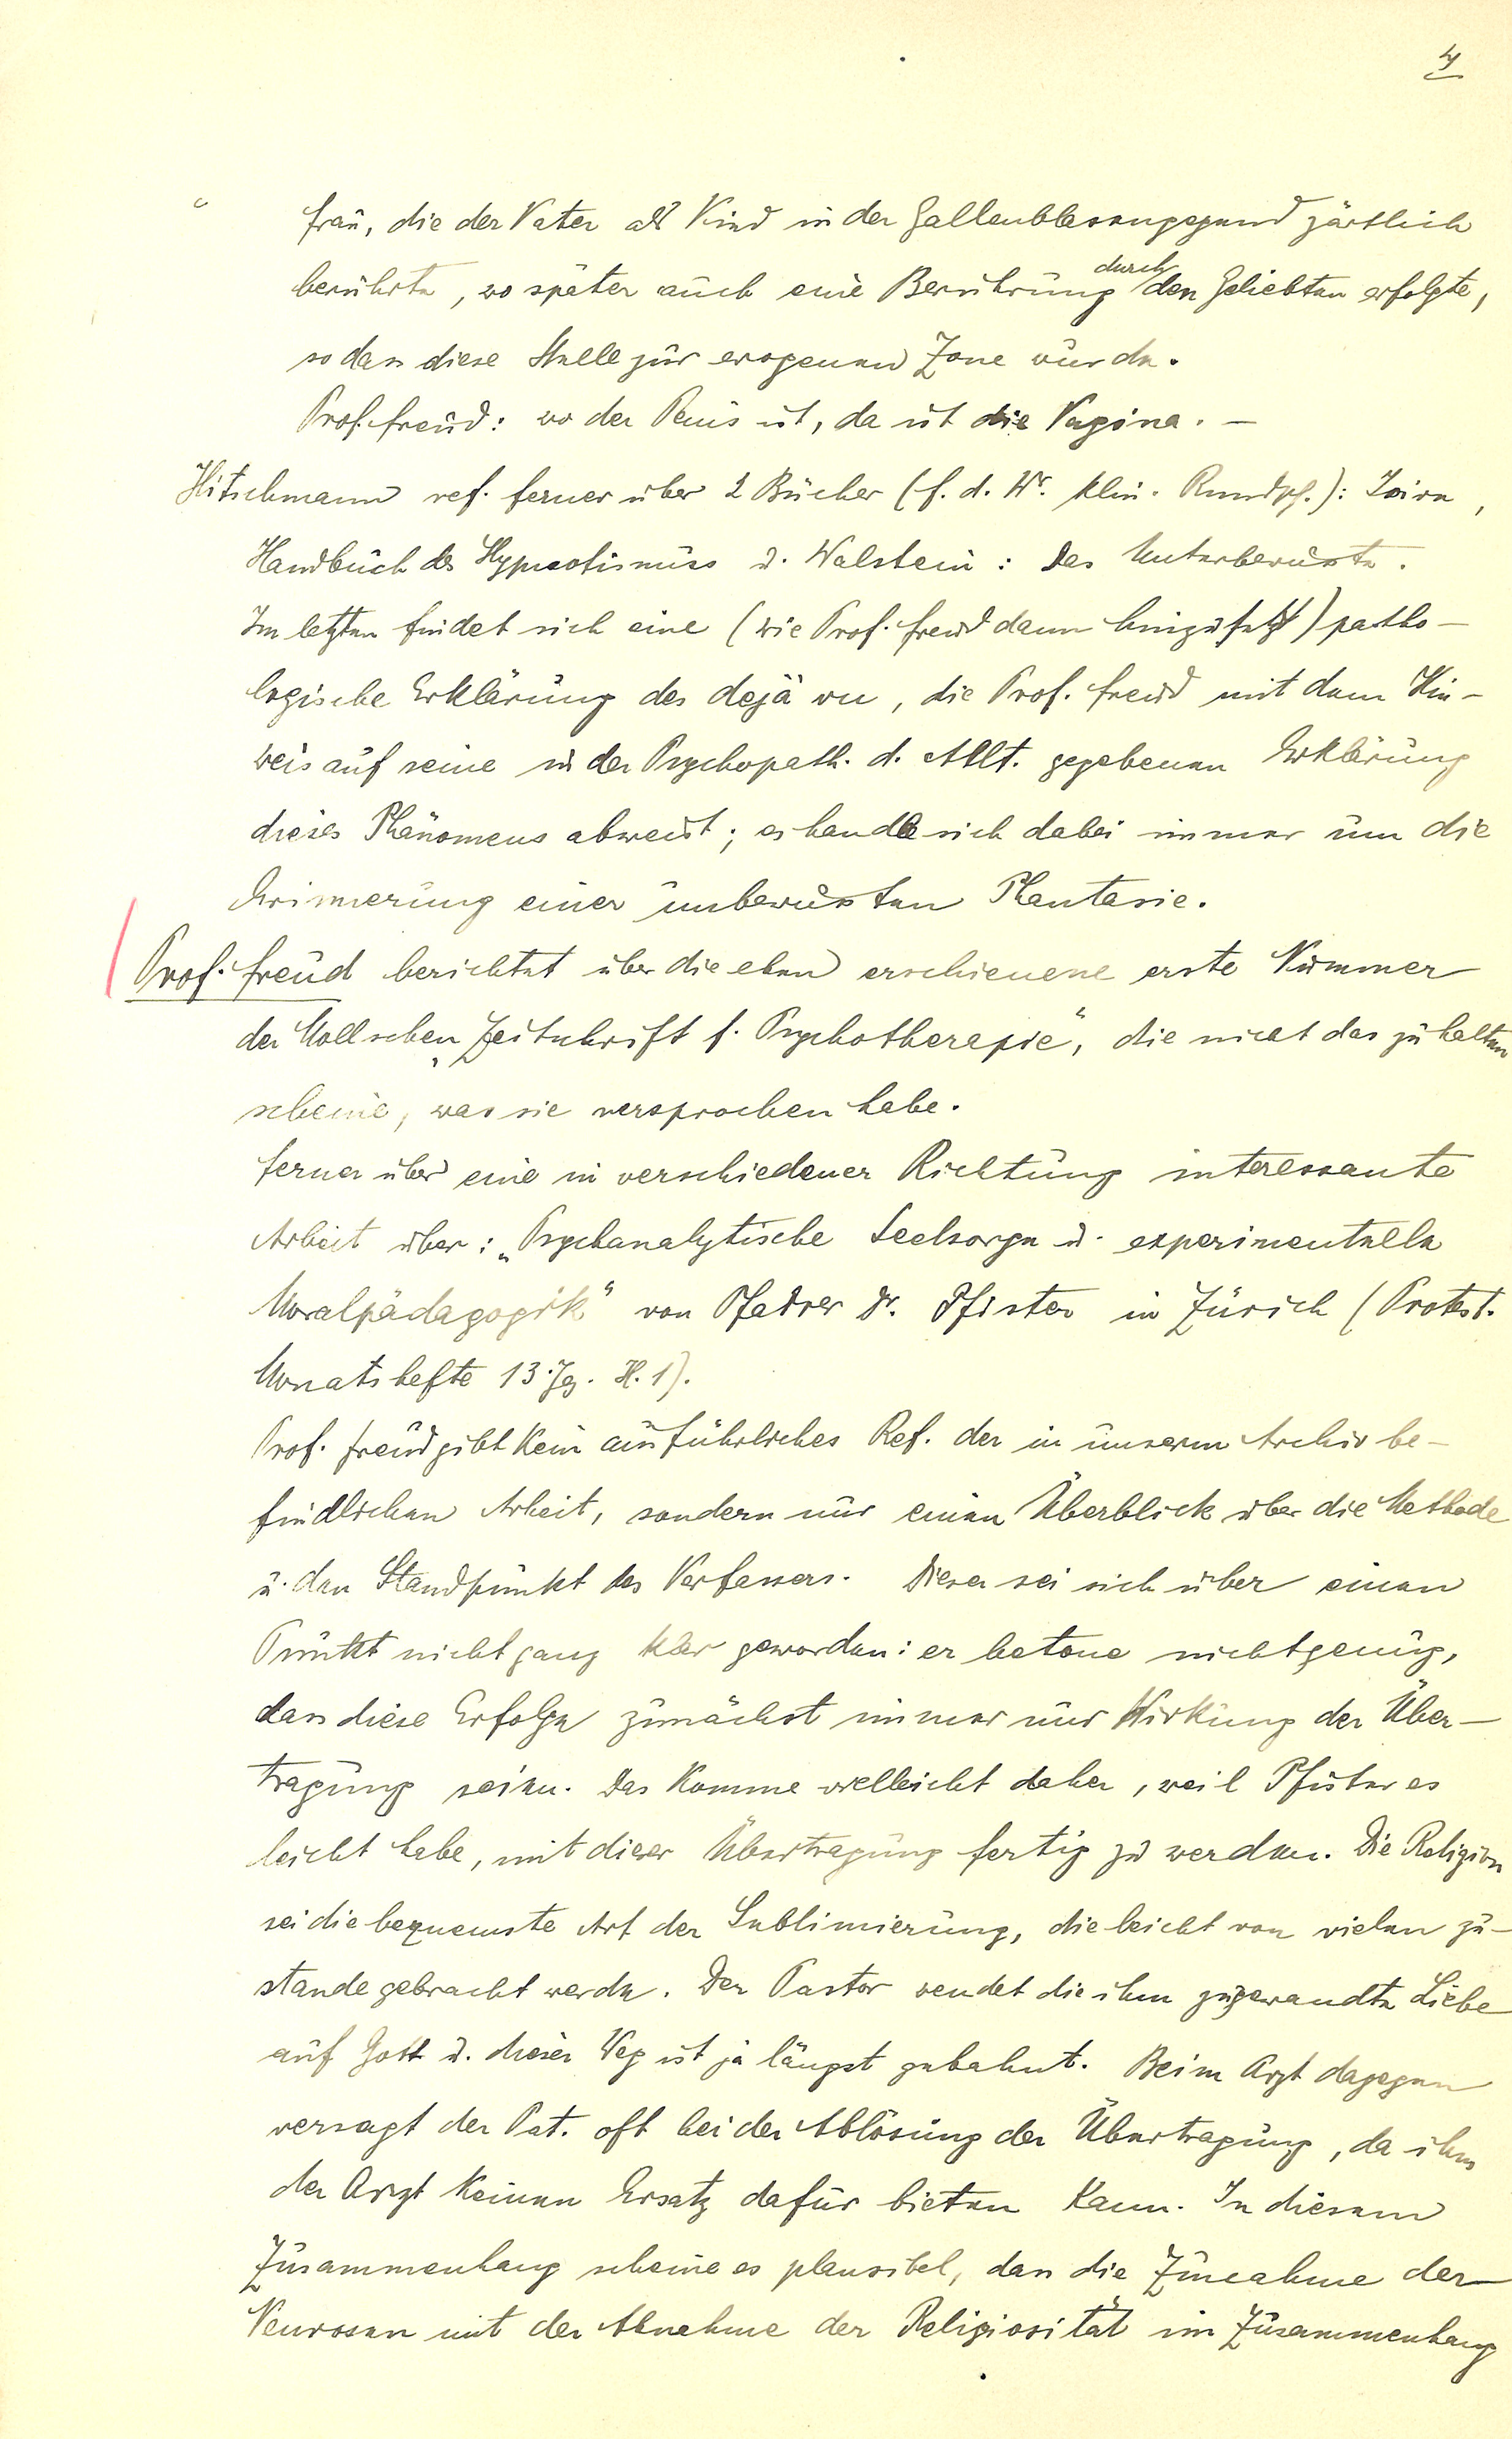 4
Frau, die der Vater als Kind in der Gallenblasengegend zärtlich
berührte, wo später auch eine Berührung durch den Geliebten erfolgte,
so dass diese Stelle zur erogenen Zone wurde.
Prof. Freud: wo der Penis ist, da ist die Vagina. –
Hitschmann ref. ferner über 2 Bücher (f. d. Wr. klin. Rundsch.): Joire,
Handbuch des Hypnotismus u. Walstein: Das Unterbewusste.
Im letzten findet sich eine (wie Prof. Freud dann hinzusetzt) patho-
logische Erklärung des dejà vu, die Prof. Freud mit dem Hin-
weis auf seine in der Psychopath. d. Allt. gegebenen Erklärung
dieses Phänomens abweist; es handle sich dabei immer um die
Erinnerung einer unbewussten Phantasie.
Prof. Freud berichtet über die eben erschienene erste Nummer
der Mollschen „Zeitschrift f. Psychotherapie“, die nicht das zu halten
scheine, was sie versprochen habe.
Ferner über eine in verschiedener Richtung interessante
Arbeit über: „Psychanalytische Seelsorge u. experimentelle
Moralpädagogik“ von Pfarrer Dr. Pfister in Zürich (Protest.
Monatshefte 13. Jg. H. 1).
Prof. Freud gibt kein ausführliches Ref. der in unserm Archiv be-
findlichen Arbeit, sondern nur einen Überblick über die Methode
u. den Standpunkt des Verfassers. Dieser sei sich über einen
Punkt nicht ganz klar geworden: er betone nicht genug,
dass diese Erfolge zunächst immer nur Wirkung der Über-
tragung seien. Das komme vielleicht daher, weil Pfister es
leicht habe, mit dieser Übertragung fertig zu werden. Die Religion
sei die bequemste Art der Sublimierung, die leicht von vielen zu-
stande gebracht werde. Der Pastor wendet die ihm zugewandte Liebe
auf Gott u. dieser Weg ist ja längst gebahnt. Beim Arzt dagegen
versagt der Pat. oft bei der Ablösung der Übertragung, da ihm
der Arzt keinen Ersatz dafür bieten kann. In diesem
Zusammenhang scheine es plausibel, dass die Zunahme der
Neurosen mit der Abnahme der Religiosität im Zusammenhang